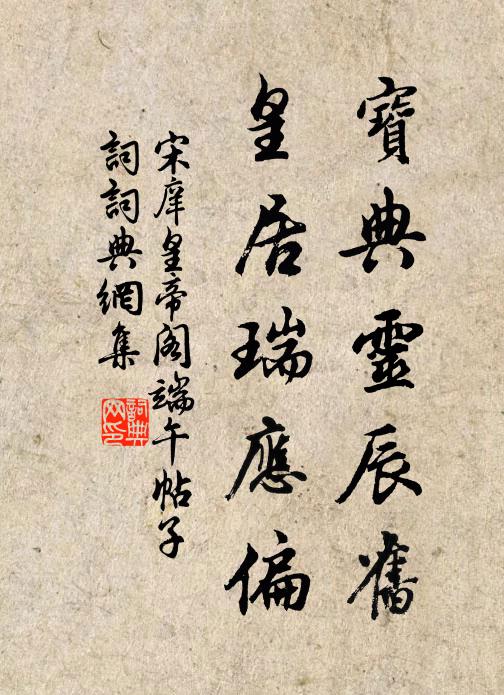 寶典靈辰舊
皇居瑞應偏
宋庠皇帝閣端午帖子
詞詞典網集
詞典
网印